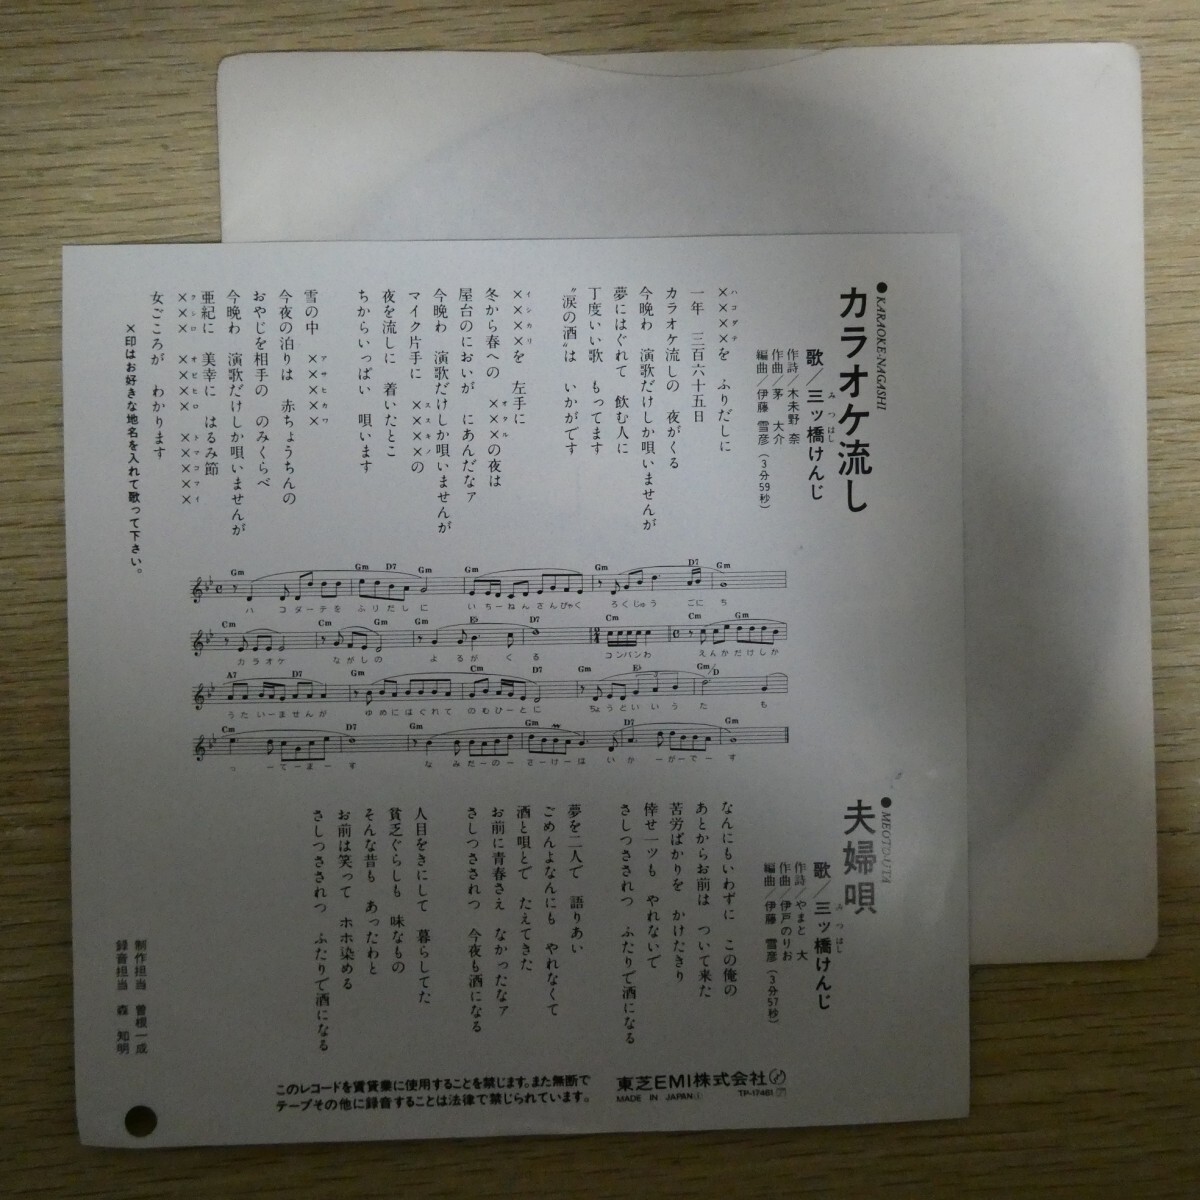 ●KARAOKE-NAGASHI
カラオケ流し
歌／三ッ橋けんじ
みつはし
作詩／木未野 奈
作曲／茅 大介
編曲／伊藤 雪彦（3分59秒）
ハコダテ
××××を ふりだしに
一年 三百六十五日
カラオケ流しの 夜がくる
今晩わ 演歌だけしか唄いませんが
夢にはぐれて 飲む人に
丁度いい歌 もってます
〝涙の酒〟は いかがです
イシカリ
××××を 左手に
オタル
冬から春への ×××の夜は
屋台のにおいが にあんだなァ
今晩わ 演歌だけしか唄いませんが
ススキノ
マイク片手に ××××の
夜を流しに 着いたとこ
ちからいっぱい 唄います
アサヒカワ
雪の中 ×××××
今夜の泊りは 赤ちょうちんの
おやじを相手の のみくらべ
今晩わ 演歌だけしか唄いませんが
亜紀に 美幸に はるみ節
クシロ オビヒロ トマコマイ
××× ×××× ×××××
女ごころが わかります
×印はお好きな地名を入れて歌って下さい。
Gm Gm D7 Gm Gm Gm D7 Gm
ハ コダーテを ふりだしに いちーねんさんびゃく ろくじゅう ごにち
Cm Cm Gm Gm E♭ D7 Cm Cm Gm
カラオケ ながしの よるが くる コンバンわ えんかだけしか
A7 D7 Gm Cm D7 Gm E♭ Gm/D
うたいーませんが ゆめにはぐれて のむひーとに ちょうどいいうた も
Cm D7 Gm Gm D7 Gm
っ ーてーまー す なみだーのー さーけーは いか ーがーでー す
●MEOTO-UTA
夫婦唄
歌／三ッ橋けんじ
みつはし
作詩／やまと 大
作曲／伊戸のりお
編曲／伊藤 雪彦（3分57秒）
なんにもいわずに この俺の
あとからお前は ついて来た
苦労ばかりを かけたきり
倖せ一ッも やれないで
さしつさされつ ふたりで酒になる
夢を二人で 語りあい
ごめんよなんにも やれなくて
酒と唄とで たえてきた
お前に青春さえ なかったなァ
さしつさされつ 今夜も酒になる
人目をきにして 暮らしてた
貧乏ぐらしも 味なもの
そんな昔も あったわと
お前は笑って ホホ染める
さしつさされつ ふたりで酒になる
制作担当 曽根一成
録音担当 森 知明
このレコードを賃貸業に使用することを禁じます。また無断で
テープその他に録音することは法律で禁じられています。
東芝EMI株式会社
MADE IN JAPAN
TP-17461